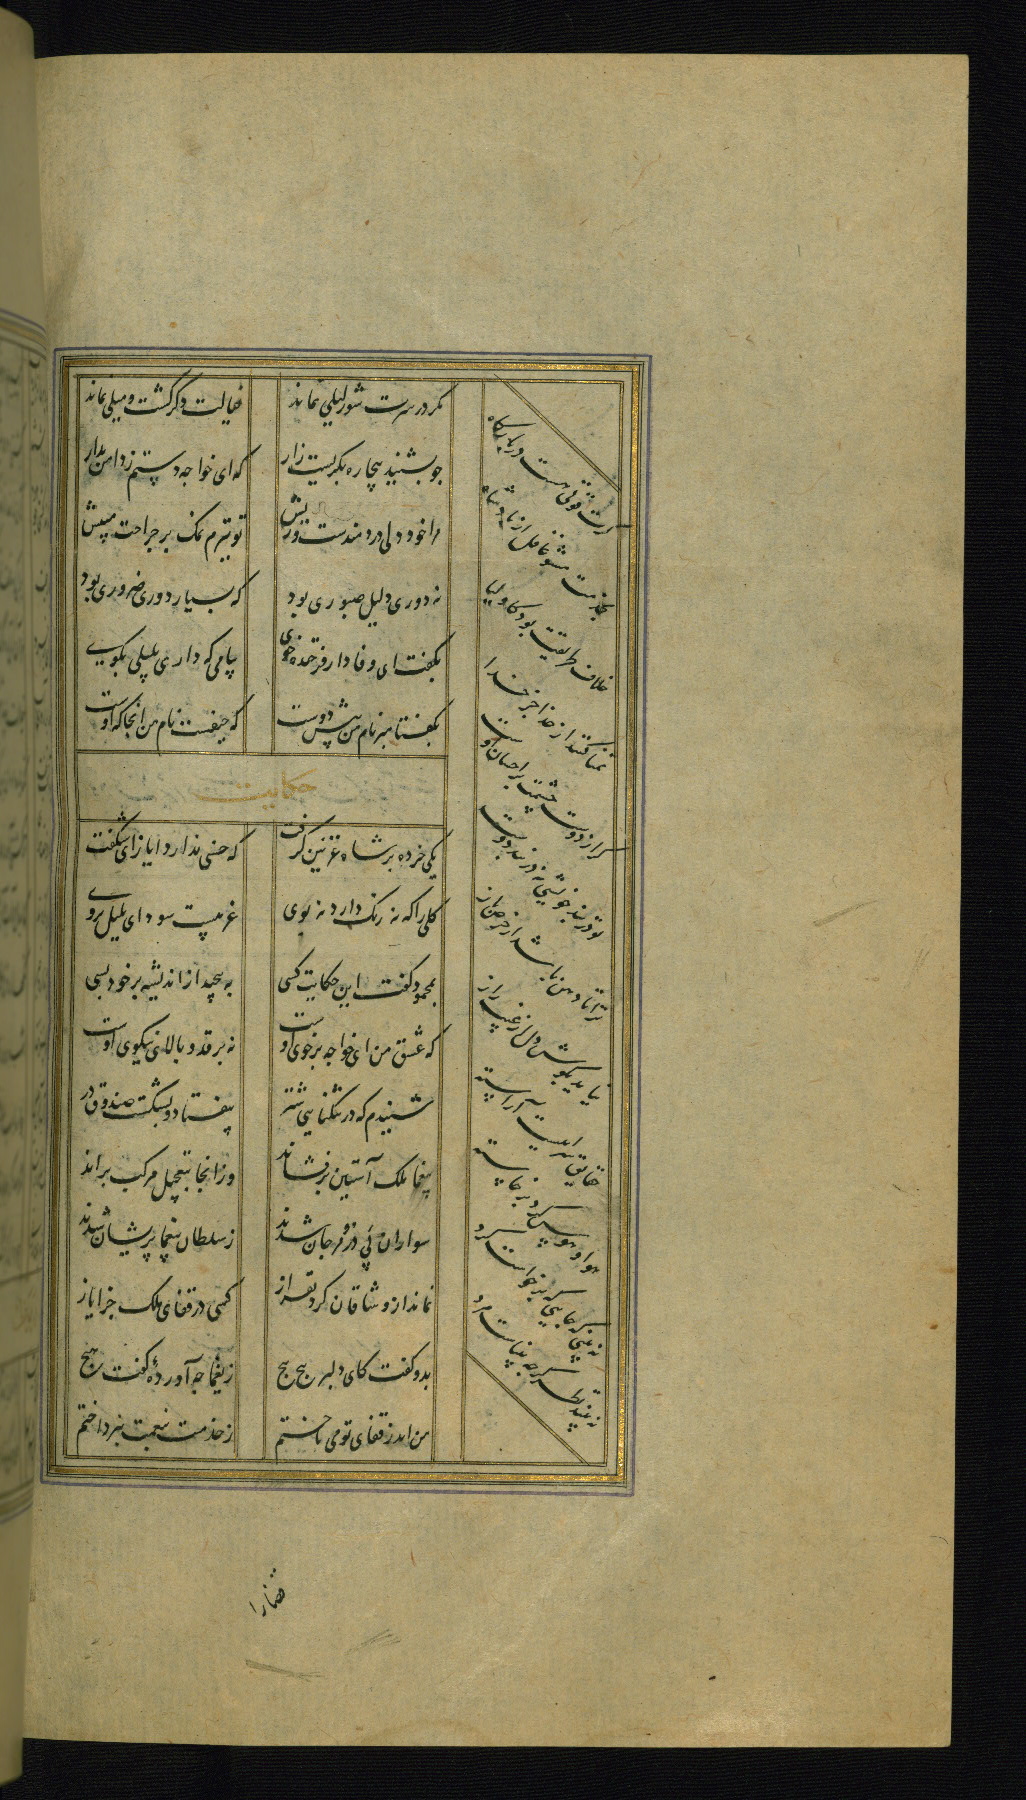 مگر در سرت شور لیلی نماند خیالت دگر گشت و میلی نماند
چو بشنید بیچاره بگریست زار که ای خواجه دستم ز دامن بدار
مرا خود دلی دردمندست ریش تو نیزم نمک بر جراحت مپیش
نه دوری دلیل صبوری بود که بسیار دوری ضروری بود
بگفت ای وفادار فرخنده خوی پیامی که داری بلیلی بگوی
بگفتا مبر نام من پیش دوست که حیفست نام من آنجا که اوست
حکایت
یکی خرده بر شاه غزنین گرفت که حسنی ندارد ایاز ای شگفت
گلی را که نه رنگ دارد نه بوی غریبست سودای بلبل بروی
بمحمود گفت این حکایت کسی به پیچید از اندیشه بر خود بسی
که عشق من ای خواجه بر خوی اوست نه بر قد و بالای نیکوی اوست
شنیدم که در تنگنایی شتر بیفتاد و بشکست صندوق در
بیغما ملک آستین برفشاند وز انجا بتعجیل مرکب براند
سواران پی در و مرجان شدند ز سلطان بیغما پریشان شدند
نماند از وشاقان گردنفراز کسی در قفای ملک جز ایاز
بدو گفت کای دلبر پیچ پیچ ز یغما چه آوردهٔ گفت هیچ
من اندر قفای تو می تاختم ز خدمت بنعمت نپرداختم
گرت قربتی هست در بارگاه
بخدمت مشو غافل از پادشاه
خلاف طریقت بود کاولیا
تمنا کنند از خدا جز خدا
گر از دوست چشمت بر احسان اوست
تو در بند خویشی نه در بند دوست
ترا تا دهن باشد از حرص باز
نیاید بگوش دل از غیب راز
حقایق سراییست آراسته
هوا و هوس گرد برخاسته
نه بینی که جایی که برخاست گرد
نبیند نظر گرچه بیناست مرد
قضا را